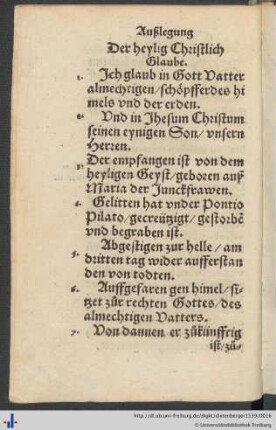 Außlegung
Der heylig Christlich
Glaube.
1. Ich glaub in Gott Vatter
almechtigen/schöpfferdes hi
mels vnd der erden.
2. Vnd in Jhesum Christum
seinen eynigen Son/vnsern
Herren.
3. Der empfangen ist von dem
heyligen Geyst/geboren auß
Maria der Junckfrawen.
4. Gelitten hat vnder Pontio
Pilato/gecreützigt/gestorbē
vnd begraben ist.
5. Abgestigen zur helle/am
dritten tag wider aufferstan
den von todten.
6. Auffgefaren gen himel/si-
tzet zůr rechten Gottes/des
almechtigen Vatters.
7. Von dannen er zůkünfftig
ist/zů-
http://dl.ub.uni-freiburg.de/diglit/dietenberger1539/0016
© Universitätsbibliothek Freiburg